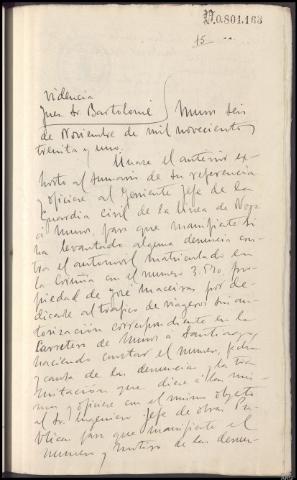 0.801.163
15
Videncia
Juez Sr. Bartolomé
Muros Seis
de Noviembre de mil novecientos
treinta y uno.
Unase el anterior ex-
horto al sumario de su referencia
y oficiese al Teniente Jefe de la
Guardia Civil de la linea de Noya
a Muros, para que manifieste si
ha levantado alguna denuncia con-
tra el automovil matriculado en
la Coruña con el numero 3.510, pro-
piedad de José Maceiras por de-
dicarse al trafico de viageros sin au-
torización correspondiente en la
Carretera de Muros a Santiago y
haciendo constar el numero, fecha
y causa de la denuncia y la tra-
mitación que diere a las mis-
mas y oficiese con el mismo objeto
al Sr. Ingeniero Jefe de obras Pu-
blicas para que manifieste el
numero y motivo de las denun-